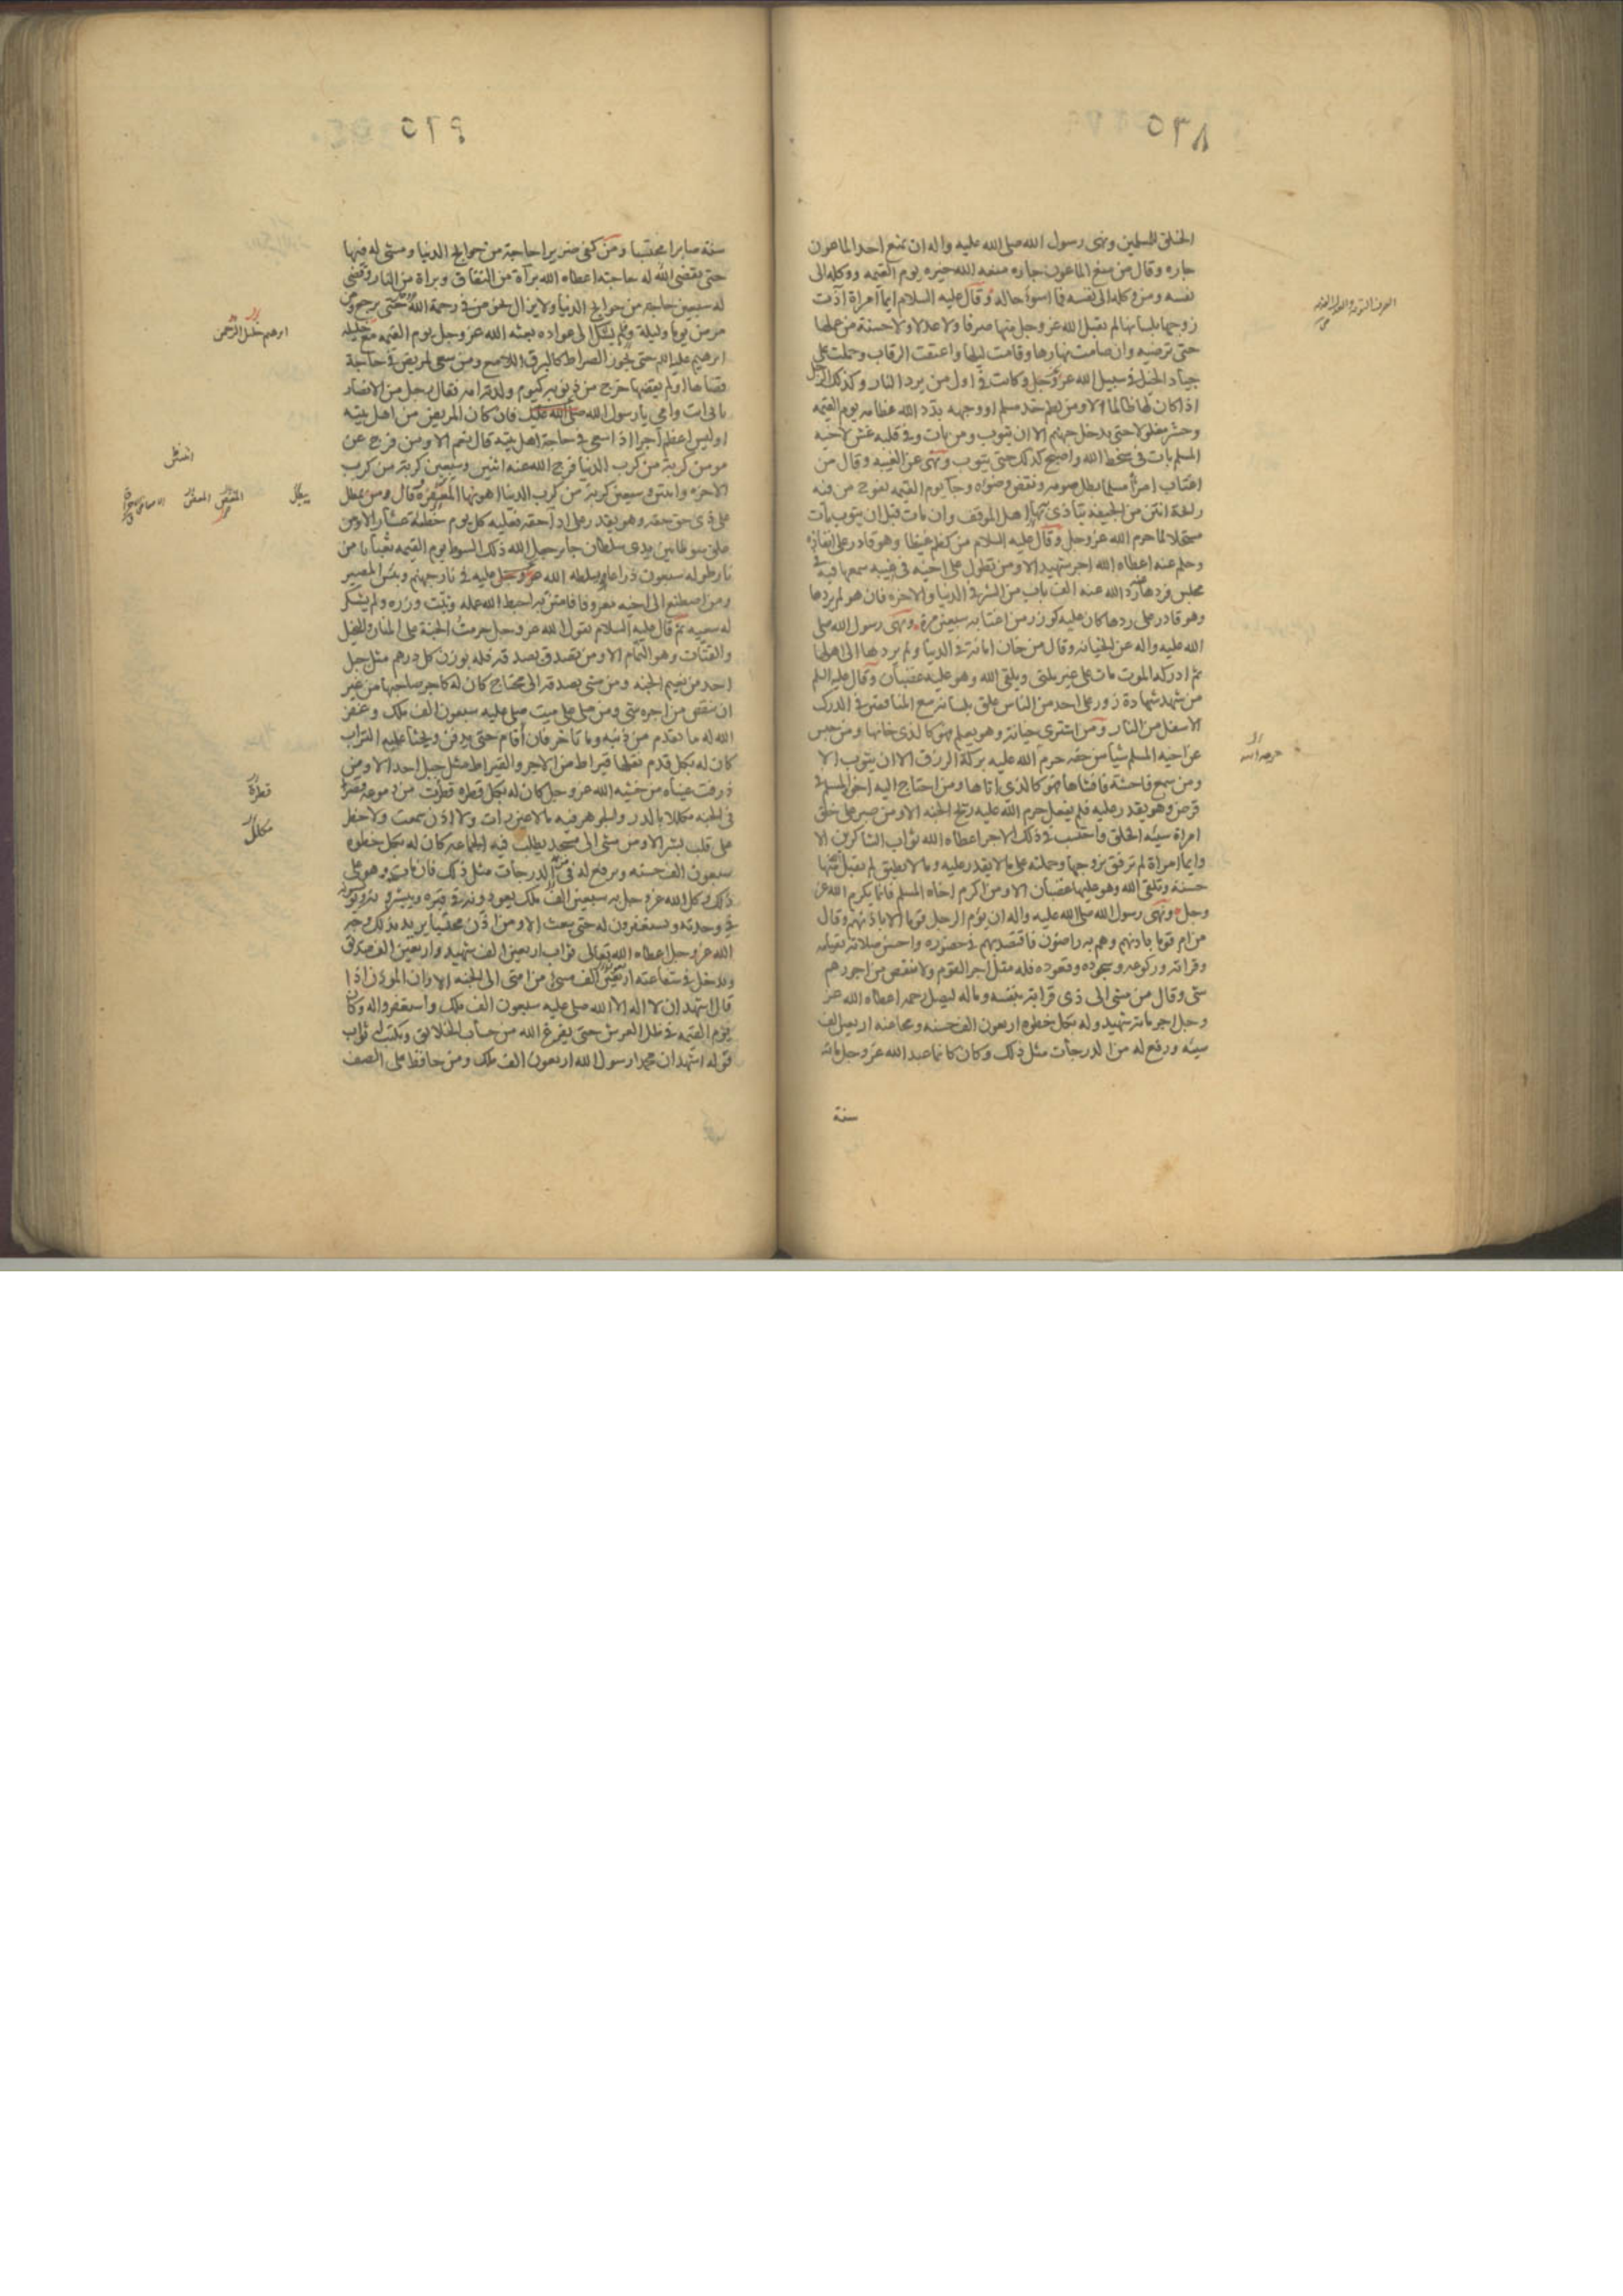 ٥٦٨
الخلق للمسلمين ونهى رسول الله صلى الله عليه واله ان يمنع احد الماعون
جاره وقال من منع الماعون جاره منعه الله خيره يوم القيمه ووكله الى
نفسه ومن وكله الى نفسه فما اسوأ حاله وقال عليه السلام ايما امراة آذت
زوجها بلسانها لم يقبل الله عز وجل منها صرفا ولا عدلا ولا حسنة من عملها
حتى ترضيه وان صامت نهارها وقامت ليلها واعتقت الرقاب وحملت على
جياد الخيل في سبيل الله عز وجل وكانت في اول من يرد النار وكذلك الرجل
اذا كان لها ظالما الا ومن لطم خد مسلم او وجهه بدد الله عظامه يوم القيمه
وحشر مغلولا حتى يدخل جهنم الا ان يتوب ومن بات وفي قلبه غش لاخيه
المسلم بات في سخط الله واصبح كذلك حتى يتوب ونهى عن الغيبه وقال من
اغتاب امرأ مسلما بطل صومه ونقض وضوءه وجآ يوم القيمه يفوح من فيه
رائحة انتن من الجيفه يتأذى بها اهل الموقف وان مات قبل ان يتوب مات
مستحلا لما حرم الله عز وجل وقال عليه السلام من كظم غيظا وهو قادر على انفاذه
وحلم عنه اعطاه الله اجر شهيد الا ومن تطول على اخيه في غيبه سمعها فيه في
مجلس فردها عنه رد الله عنه الف باب من الشر في الدنيا والاخره فان هو لم يردها
وهو قادر على ردها كان عليه كوزر من اغتابه سبعين مرة ونهى رسول الله صلى
الله عليه واله عن الخيانه وقال من خان امانة في الدنيا ولم يردها الى اهلها
ثم ادركه الموت مات على غير ملتي ويلقى الله وهو عليه غضبان وقال عليه السلم
من شهد شهادة زور على احد من الناس علق بلسانه مع المنافقين في الدرك
الاسفل من النار ومن اشترى خيانة وهو يعلم فهو كالذي خانها ومن حبس
عن اخيه المسلم شيأ من حقه حرم الله عليه بركة الرزق الا ان يتوب الا
ومن سمع فاحشة فافشاها فهو كالذي اتاها ومن احتاج اليه اخوه المسلم في
قرض وهو يقدر عليه فلم يفعل حرم الله عليه ريح الجنه الا ومن صبر على خلق
امراة سيئه الخلق واحتسب في ذلك الاجر اعطاه الله ثواب الشاكرين الا
وايما امراة لم ترفق بزوجها وحملته على ما لا يقدر عليه وما لا يطيق لم يقبل منها
حسنة وتلقى الله وهو عليها غضبان الا ومن اكرم اخاه المسلم فانما يكرم الله عز
وجل ونهى رسول الله صلى الله عليه واله ان يؤم الرجل قوما الا باذنهم وقال
من ام قوما باذنهم وهم به راضون فاقتصد بهم في حضوره واحسن صلاته بقيامه
وقراته وركوعه وسجوده وقعوده فله مثل اجر القوم ولا ينقص من اجورهم
شي وقال من مشى الى ذي قرابة بنفسه وماله ليصل رحمه اعطاه الله عز
وجل اجر مائة شهيد وله بكل خطوه اربعون الف حسنه ومحا عنه اربعين الف
سيئه ورفع له من الدرجات مثل ذلك وكان كانما عبد الله عز وجل مائة
سنة
٥٦٩
سنة صابرا محتسبا ومن كفى ضريرا حاجة من حوايج الدنيا ومشى له فيها
حتى يقضى الله له حاجته اعطاه الله برآة من النفاق وبراة من النار وقضى
له سبعين حاجة من حوايج الدنيا ولا يزال يخوض في رحمة الله حتى يرجع ومن
مرض يوما وليلة ولم يشك الى عواده بعثه الله عز وجل يوم القيمه مع خليله
ابرهيم عليه السلام حتى يجوز الصراط كالبرق اللامع ومن سعى لمريض في حاجة
قضاها او لم يقضها خرج من ذنوبه كيوم ولدته امه فقال رجل من الانصار
بابي انت وامي يا رسول الله فان كان المريض من اهل بيته
اوليس اعظم اجرا اذا سعى في حاجة اهل بيته قال نعم الا ومن فرج عن
مومن كربة من كرب الدنيا فرج الله عنه اثنين وسبعين كربة من كرب
الاخره واثنتين وسبعين كربة من كرب الدنيا اهونها المغص وقال ومن يمطل
على ذي حق حقه وهو يقدر على ادآ حقه فعليه كل يوم خطيئة عشار الا ومن
علق سوطا بين يدي سلطان جائر جعل الله ذلك السوط يوم القيمه ثعبانا من
نار طوله سبعون ذراعا يسلطه الله عز وجل عليه في نار جهنم وبئس المصير
ومن اصطنع الى اخيه معروفا فامتن به احبط الله عمله وثبت وزره ولم يشكر
له سعيه ثم قال عليه السلام يقول الله عز وجل حرمت الجنة على المنان والبخيل
والقتات وهو النمام الا ومن تصدق بصدقة فله بوزن كل درهم مثل جبل
احد من نعيم الجنه ومن مشى بصدقه الى محتاج كان له كاجر صاحبها من غير
ان ينقص من اجره شي ومن صلى على ميت صلى عليه سبعون الف ملك وغفر
الله له ما تقدم من ذنبه وما تاخر فان أقام حتى يدفن ويحثا عليه التراب
كان له بكل قدم نقلها قيراط من الاجر والقيراط مثل جبل احد الا ومن
ذرفت عيناه من خشيه الله عز وجل كان له بكل قطره قطرت من دموعه قصرا
في الجنه مكللا بالدر والجوهر فيه ما لا عين رات ولا اذن سمعت ولا خطر
على قلب بشر الا ومن مشى الى مسجد يطلب فيه الجماعه كان له بكل خطوه
سبعون الف حسنه ويرفع له من الدرجات مثل ذلك فان مات وهو على
ذلك وكل الله عز وجل به سبعين الف ملك يعودونه في قبره ويبشرونه ويونسونه
في وحدته ويستغفرون له حتى يبعث الا ومن اذن محتسبا يريد بذلك وجه
الله عز وجل اعطاه الله تعالى ثواب اربعين الف شهيد واربعين الف صديق
ويدخل في شفاعته اربعين الف مسئ من امتي الى الجنه الا وان الموذن اذا
قال اشهد ان لا اله الا الله صلى عليه سبعون الف ملك واستغفروا له وكان
يوم القيمه في ظل العرش حتى يفرغ الله من حساب الخلائق ويكتب له ثواب
قوله اشهد ان محمدا رسول الله اربعون الف ملك ومن حافظ على الصف
ابرهيم خليل الرحمن
يبطل
قطرة
مكلل